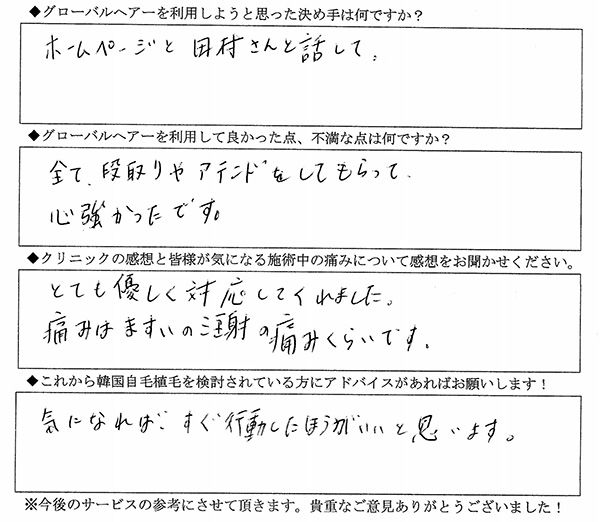 ◆グローバルヘアーを利用しようと思った決め手は何ですか？
ホームページと田村さんと話して、
◆グローバルヘアーを利用して良かった点、不満な点は何ですか？
全て、段取りやアテンドをしてもらって、
心強かったです。
◆クリニックの感想と皆様が気になる施術中の痛みについて感想をお聞かせください。
とても優しく対応してくれました。
痛みはますいの注射の痛みくらいです。
◆これから韓国自毛植毛を検討されている方にアドバイスがあればお願いします！
気になれば、すぐ行動したほうがいいと思います。
※今後のサービスの参考にさせて頂きます。貴重なご意見ありがとうございました！